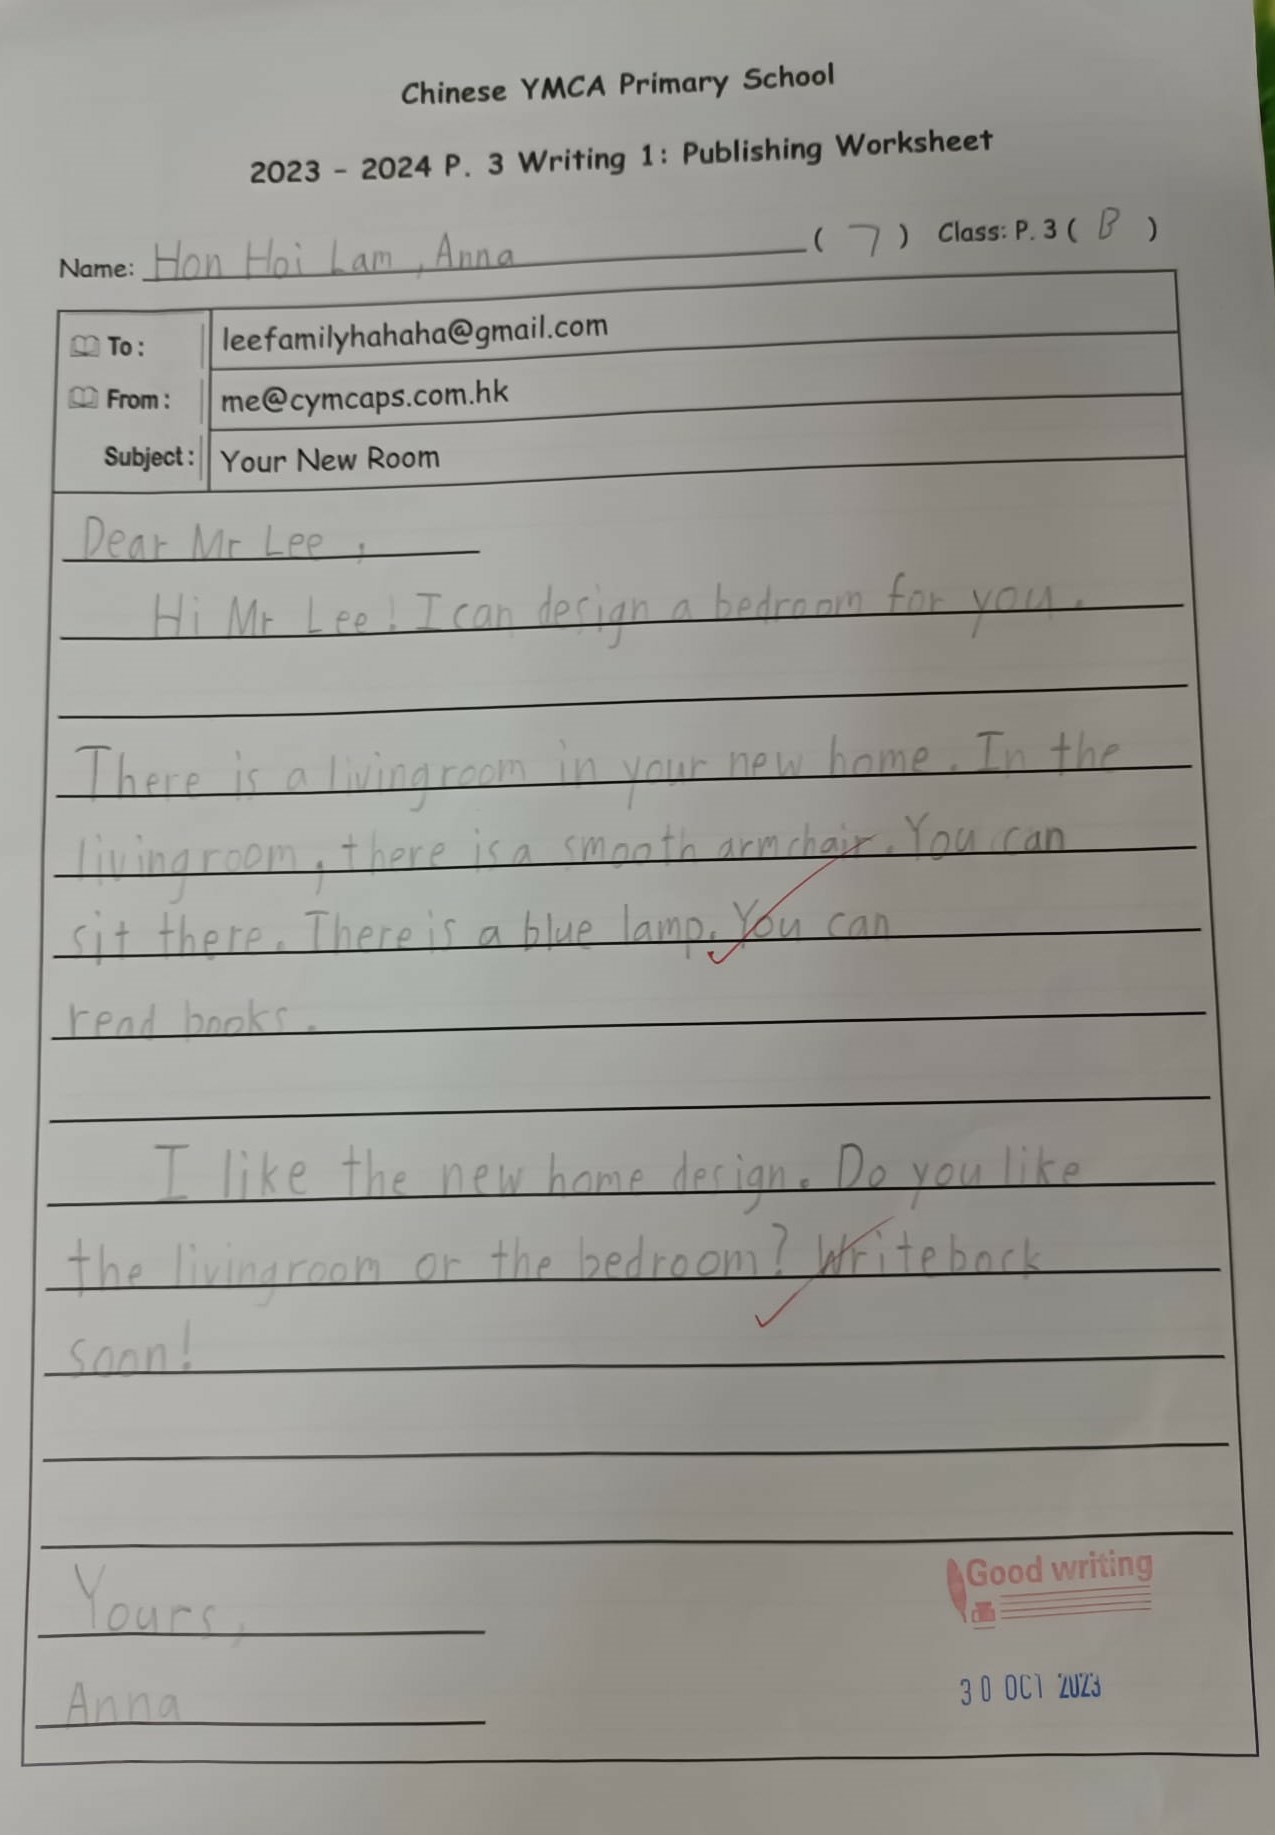 Chinese YMCA Primary School
2023 - 2024 P. 3 Writing 1: Publishing Worksheet
Name: Hon Hoi Lam, Anna (7) Class: P. 3 (B)
To: leefamilyhahaha@gmail.com
From: me@cymcaps.com.hk
Subject: Your New Room
Dear Mr Lee,
Hi Mr Lee! I can design a bedroom for you.
There is a livingroom in your new home. In the
livingroom, there is a smooth armchair. You can
sit there. There is a blue lamp. You can
read books.
I like the new home design. Do you like
the livingroom or the bedroom? Write back
soon!
Yours,
Anna
Good writing
30 OCT 2023